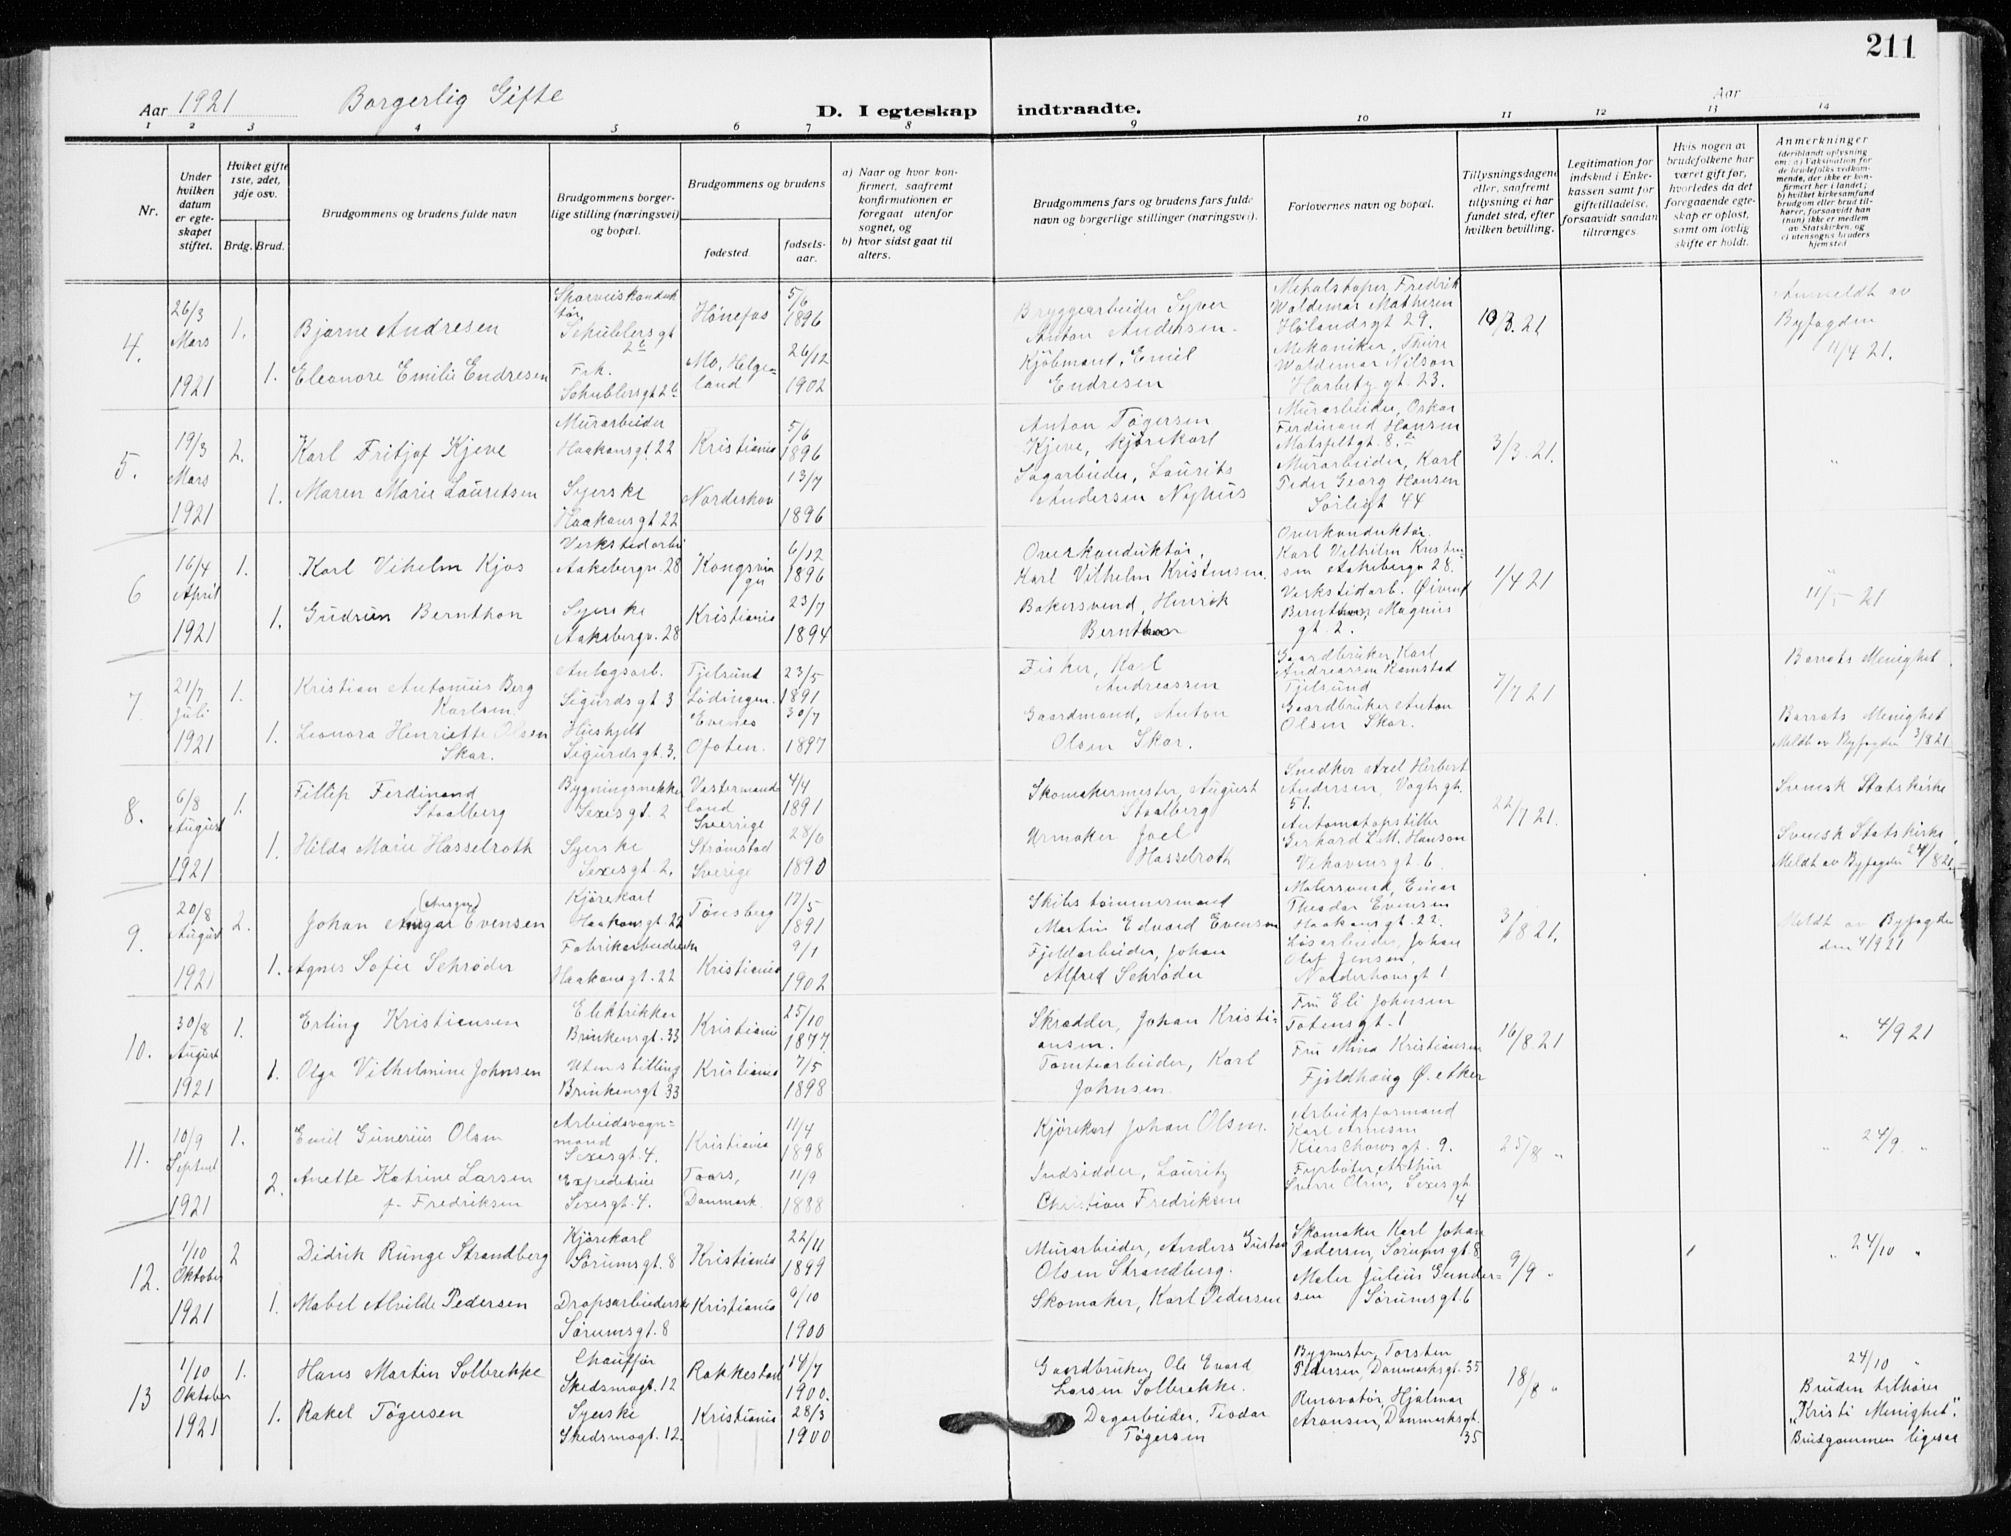 211
Aar 1921 Borgerlig Gifte D. I egteskap indtraadte. Aar
1 2 3 4 5 6 7 8 9 10 11 12 13 14
Nr.
Under hvilken datum er egteskapet stiftet.
Hvilket gifte 1ste, 2det, 3dje osv.
Brdg. Brud.
Brudgommens og brudens fulde navn
Brudgommens borgerlige stilling (næringsvei) og bopæl.
Brudgommens og brudens
fødested.
fødselsaar.
a) Naar og hvor konfirmert, saafremt konfirmationen er foregaat utenfor sognet, og
b) hvor sidst gaat til alters.
Brudgommens fars og brudens fars fulde navn og borgerlige stillinger (næringsvei).
Forlovernes navn og bopæl.
Tillysningsdagene eller, saafremt tillysning ei har fundet sted, efter hvilken bevilling.
Legitimation for indskud i Enkekassen samt for giftetilladelse, forsaavidt saadan tiltrænges.
Hvis nogen av brudefolkene har været gift før, hvorledes da det foregaaende egteskap er opløst, samt om lovlig skifte er holdt.
Anmerkninger (deriblandt oplysning om: a) Vaksination for de brudefolks vedkommende, der ikke er konfirmert her i landet; b) hvilket kirkesamfund brudgom eller brud tilhører, forsaavidt han (hun) ikke er medlem av Statskirken, og c) utensogns bruders hjemsted
4. 26/3 Mars 1921
1. Bjarne Andresen
Sporveiskonduktør, Schüblersgt
Hønefos 5/6 1896
Bryggearbeider Syver Anton Andersen.
Metalstøper, Fredrik Waldemar Mathisen Hølandsgt 29.
10/3.21
Anmeldt av Byfogden 11/4 21.
1. Eleonore Emilie Endresen
Frk. Schüblersgt
Mo, Helgeland 26/12 1902
Kjøbmant, Emil Endresen
Mekaniker, Thure Waldemar Nilson Harbitz gt. 23.
5. 19/3 Mars 1921
2. Karl Fritjof Kjeve
Murarbeider Haakonsgt 22
Kristiania 5/6 1896
Anton Tøgersen Kjeve, kjørekarl
Murarbeider, Oskar Ferdinand Hansen
3/3.21.
"
1. Maren Marie Lauretsen
Syerske Haakonsgt 22
Nordeskov 13/7 1896
Sagarbeider, Laurits Andersen Nyhus
Murarbeider, Karl Peder Georg Hansen Sørligt 44
6 16/4 April 1921
1. Karl Vihelm Kjos
Verkstedarbei Aakebergv. 28
Kongsvinger 6/12 1896
Overkonduktør, Karl Vilhelm Kristensen.
Overkonduktør. Karl Vilhelm Kristensen Aakebergv 28.
1/4 21
11/5 21
1. Gudrun Bernthon
Syerske Aakebergv. 28
Kristiania 23/7 1894
Bakersvend, Henrik Bernthon
Verkstedarb. Øivind Bernthon, Magnus gt. 2.
7. 21/7 Juli 1921
1. Kristian Antonius Berg Karlsen.
Anlægsarb. Sigurdsgt 3
Tjelsund Lødingen. 23/5 1891
Fisker, Karl Andreassen
Gaardbruker, Karl Andreassen Ramstad Tjelsund
7/7 21
Barrats Menighet
1. Leonora Henriette Olsen Skar.
Hushjelt Sigurdsgt. 3.
Evenes Ofoten. 30/7 1897
Gaardmand, Anton Olsen Skar.
Gaardbruker Anton Olsen Skar.
Barrats Menighet Meldt av Byfogden 3/8 21
8. 6/8 August 1921
1. Fillip Ferdinand Staalberg
Bygningsnekker Sexesgt. 2
Vestermanland Sverrige 4/4 1891
Skomakermester, August Staalberg
Snedker Axel Herbert Andersen, Vogtsgt. 51.
22/7 21.
Svensk Statskirke
1. Hilda Marie Hasselroth
Syerske Sexesgt. 2.
Strømstad Sverige 28/6 1890
Urmaker Joel Hasselroth
Automatopstiller Gerhard L.M. Hanson Vekavensgt. 6.
Svensk Statskirke Meldt av Byfogden 24/8 21.
9. 20/8 August 1921
2. Johan Ansgar Evensen
Kjørekarl Haakonsgt 22
Tønsberg 17/5 1891
Skibstømmermand Martin Edvard Evenson
Malersvend, Einar Theodor Evensen Haakonsgt. 22.
3/8 21.
Meldt av Byfogden den 4/9 21
1. Agnes Sofie Schrøder
Fabrikarbeiderske Haakonsgt. 22
Kristiania 9/1 1902
Fjeldarbeider, Johan Alfred Schrøder
Løsarbeider, Johan Olaf Jensen, Norderhovsgt 1
10. 30/8 August 1921
1. Erling Kristiansen
Elektrikker Brinkensgt. 33
Kristiania 25/10 1877.
Skrædder, Johan Kristiansen.
Fru Eli Johnsen Totensgt. 1
16/8.21
" 4/9 21
1. Olga Vilhelmine Johnsen
Uten stilling Brinkensgt 33
Kristiania 7/5 1898
Tomtearbeider, Karl Johnsen
Fru Mina Kristiansen Fjeldhaug Ø. Aker
11. 10/9 Septbr 1921
1. Emil Gunerius Olsen
Arbeidsvognmand Sexesgt. 4.
Kristiania 11/4 1898
Kjørekarl Johan Olsen.
Arbeidsformand Karl Arnesen Kierschowsgt. 9.
25/8 "
" 24/9 "
2. Anette Katrine Larsen f. Fredriksen
Expeditrice Sexesgt. 4.
Taars, Danmark. 11/9 1888
Indsidder, Lauritz Christian Fredriksen
Fyrbøter Arthur Sverre Olsen, Sexesgt 4
12. 1/10 Oktober 1921
2 Didrik Runge Strandberg
Kjørekarl Sørumsgt. 8
Kristiania 22/11 1899
Murarbeider, Anders Gustav Olsen Strandberg.
Skomaker Karl Johan Pedersen, Sørumsgt 8
9/9 "
1
" 24/10 "
1. Mabel Alvilde Pedersen
Dropsarbeiderske Sørumsgt. 8
Kristiania 9/10 1900
Skomaker, Karl Pedersen
Maler Julius Gundersen Sørumsgt. 6
13 1/10 Oktober 1921
1. Hans Martin Solbrekke
Chauffør Skedsmogt. 12
Rakkestad 14/7 1900.
Gaardbruker, Ole Evard Larsen Solbrekke.
Bygmester, Torsten Pedersen, Danmarksgt. 35
18/8 "
24/10 "
1. Rakel Tøgersen
Syerske Skedsmogt. 12.
Kristiania 28/3 1900
Dagarbeider, Teodor Tøgersen
Renovatør, Hjalmar Aronsen, Danmarksgt. 35
Bruden tilhører "Kristi Menighet". Brudgommen ligesaa